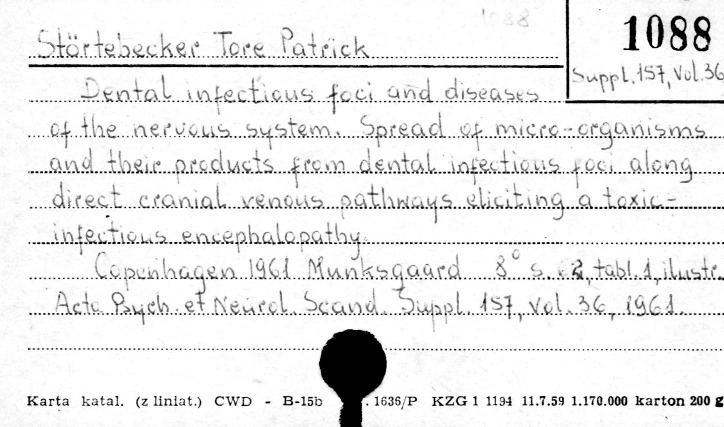 1088
1088
Störtebecker Tore Patrick
Suppl. 157, Vol. 36
Dental infectious foci and diseases
of the nervous system. Spread of micro-organisms
and their products from dental infectious foci along
direct cranial venous pathways eliciting a toxic-
infectious encephalopathy.
Copenhagen 1961 Munksgaard 8° s. 2, tabl. 1, ilustr.
Acta Psych. et Neurol. Scand. Suppl. 157, Vol. 36, 1961.
Karta katal. (z liniat.) CWD - B-15b . 1636/P KZG 1 1194 11.7.59 1.170.000 karton 200 g